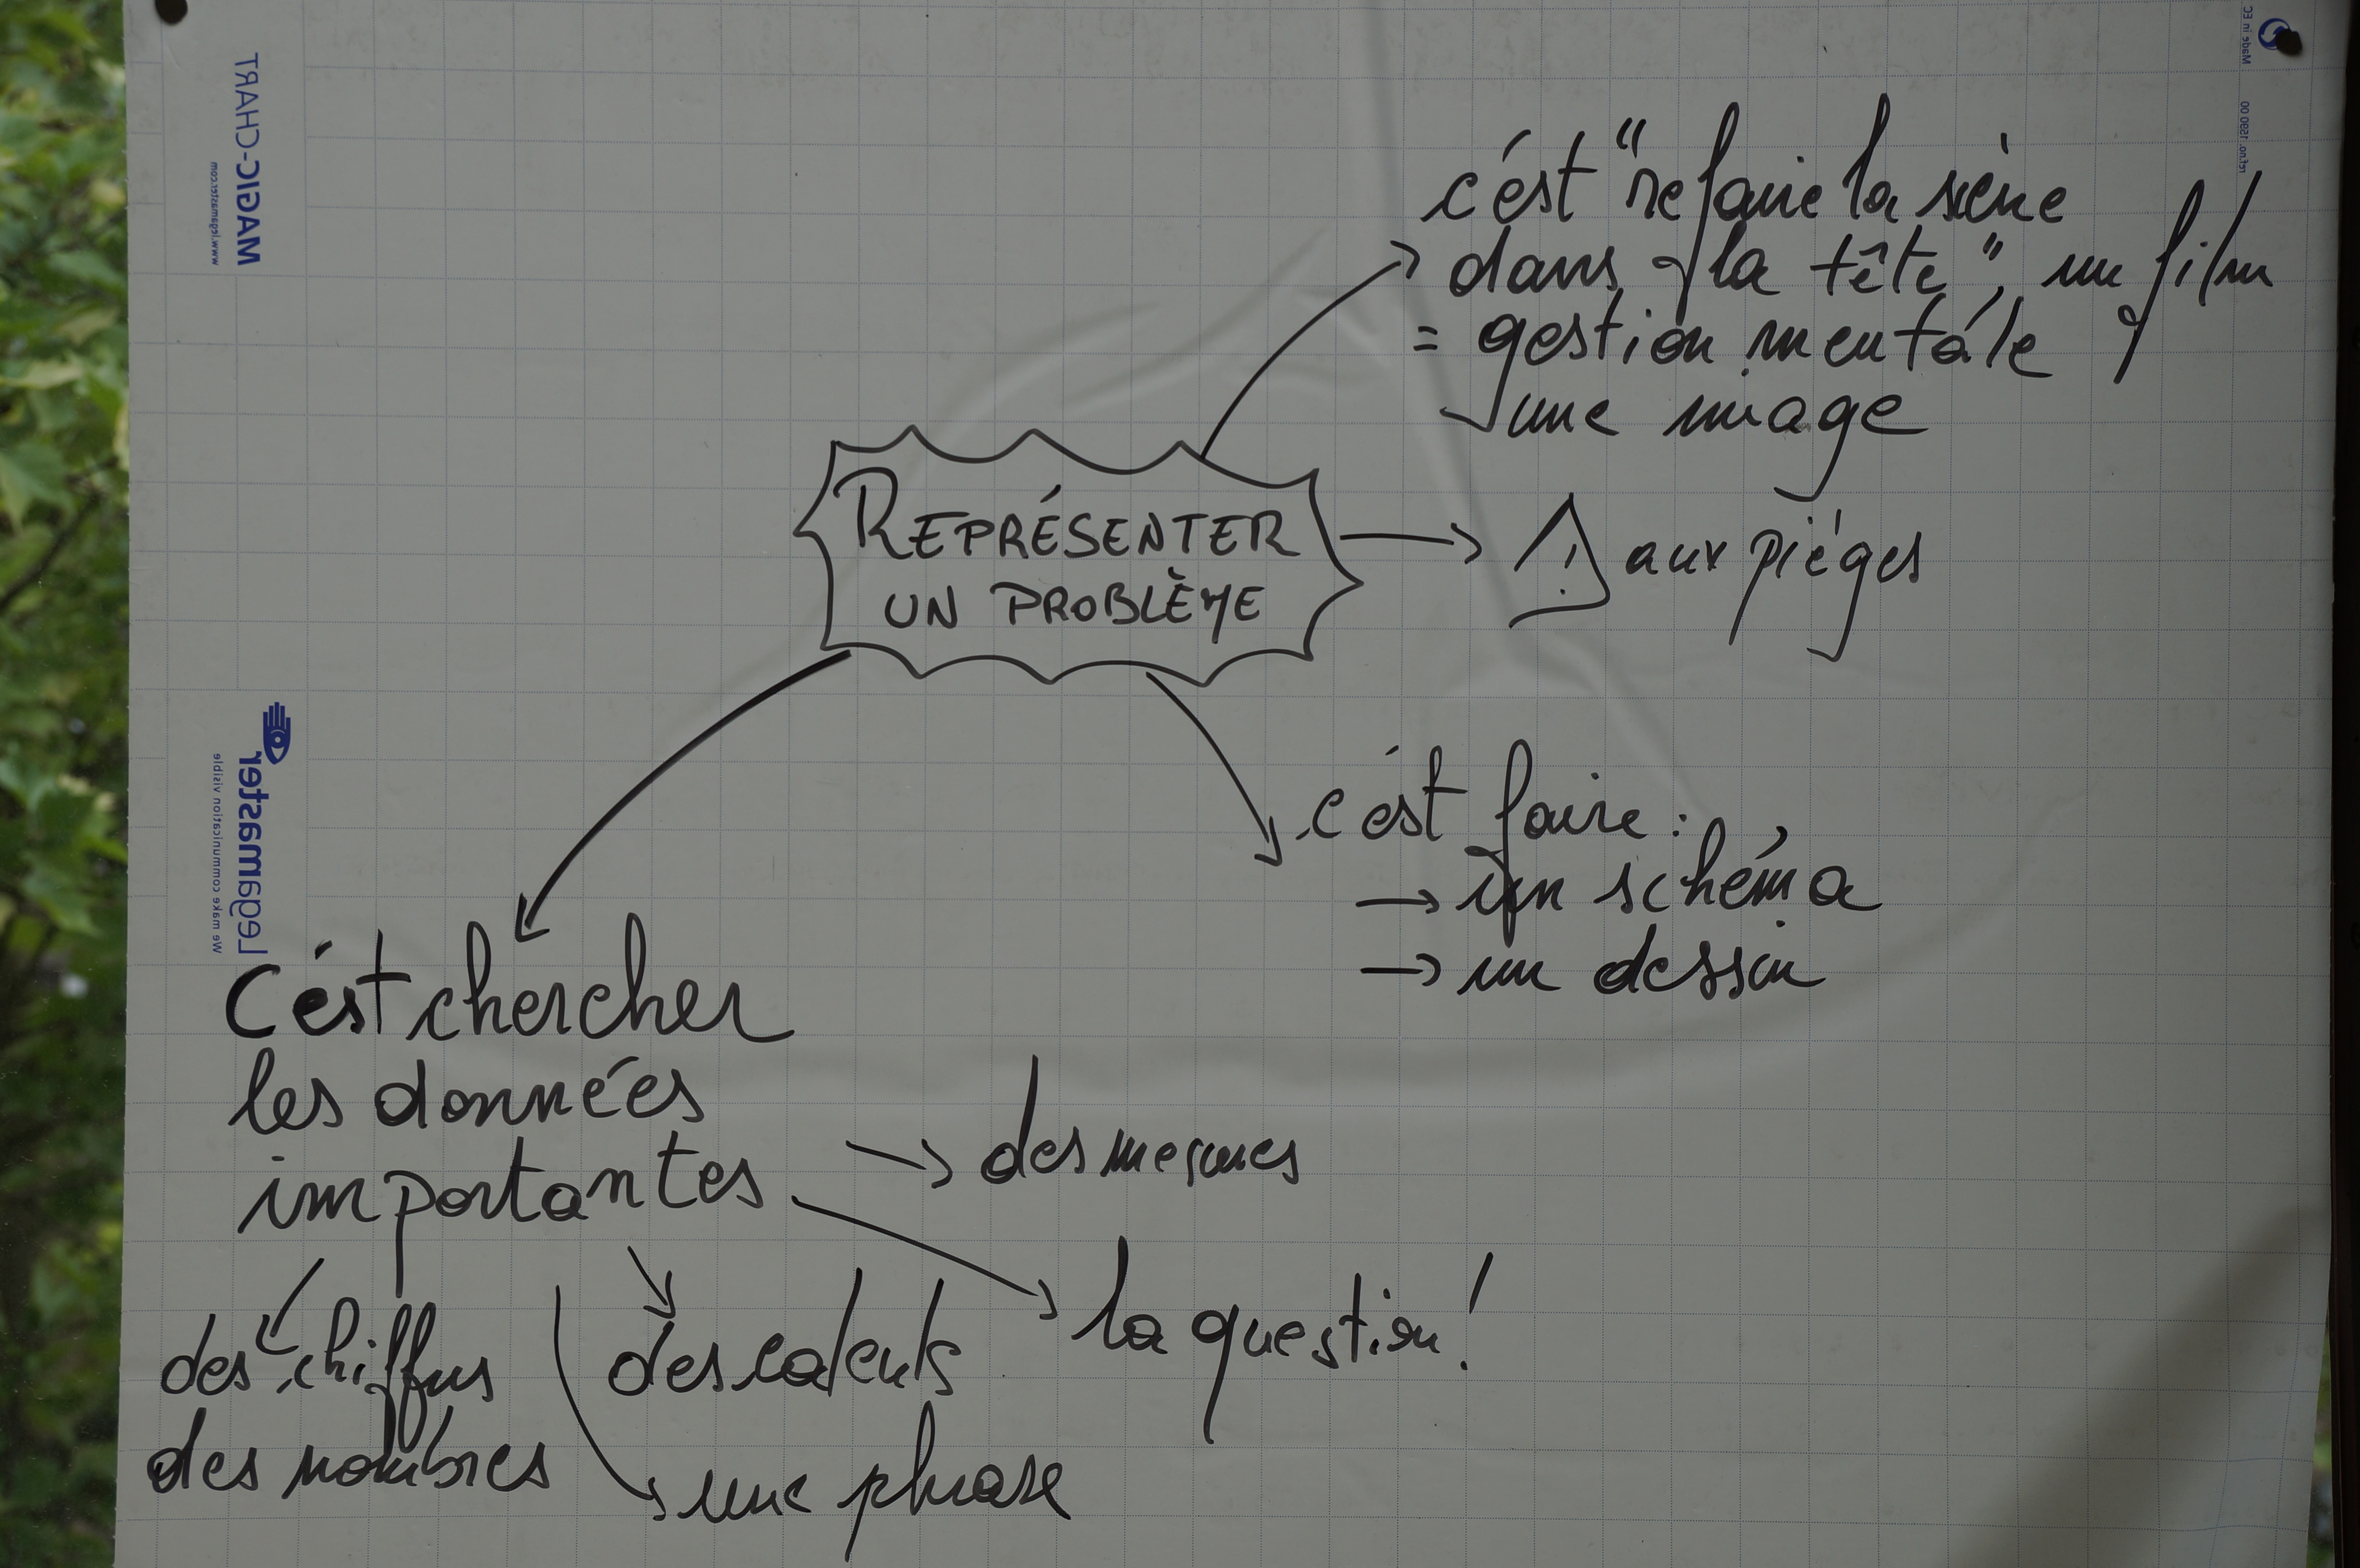 c'est "refaire la scène
dans la tête", un film
= gestion mentale
une image
REPRÉSENTER
UN PROBLÈME
⚠ aux pièges
c'est faire:
→ un schéma
→ un dessin
C'est chercher
les données
importantes
→ des mesures
→ la question!
des chiffres
des nombres
des calculs
une phrase
MAGIC-CHART
www.legamaster.com
Legamaster
We make communication visible
Made in EC